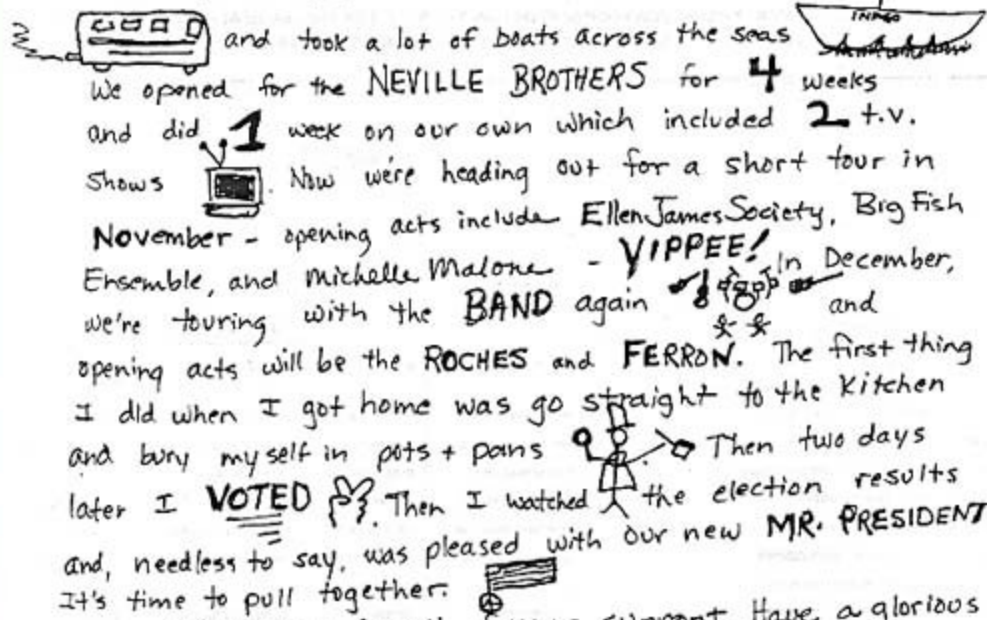 INDGO
and took a lot of boats across the seas
We opened for the NEVILLE BROTHERS for 4 weeks
and did 1 week on our own which included 2 t.v.
shows . Now we're heading out for a short tour in
November - opening acts include Ellen James Society, Big Fish
Ensemble, and Michelle Malone - YIPPEE! In December,
we're touring with the BAND again and
opening acts will be the ROCHES and FERRON. The first thing
I did when I got home was go straight to the kitchen
and bury myself in pots + pans Then two days
later I VOTED . Then I watched the election results
and, needless to say, was pleased with our new MR. PRESIDENT
It's time to pull together.
support Have a glorious